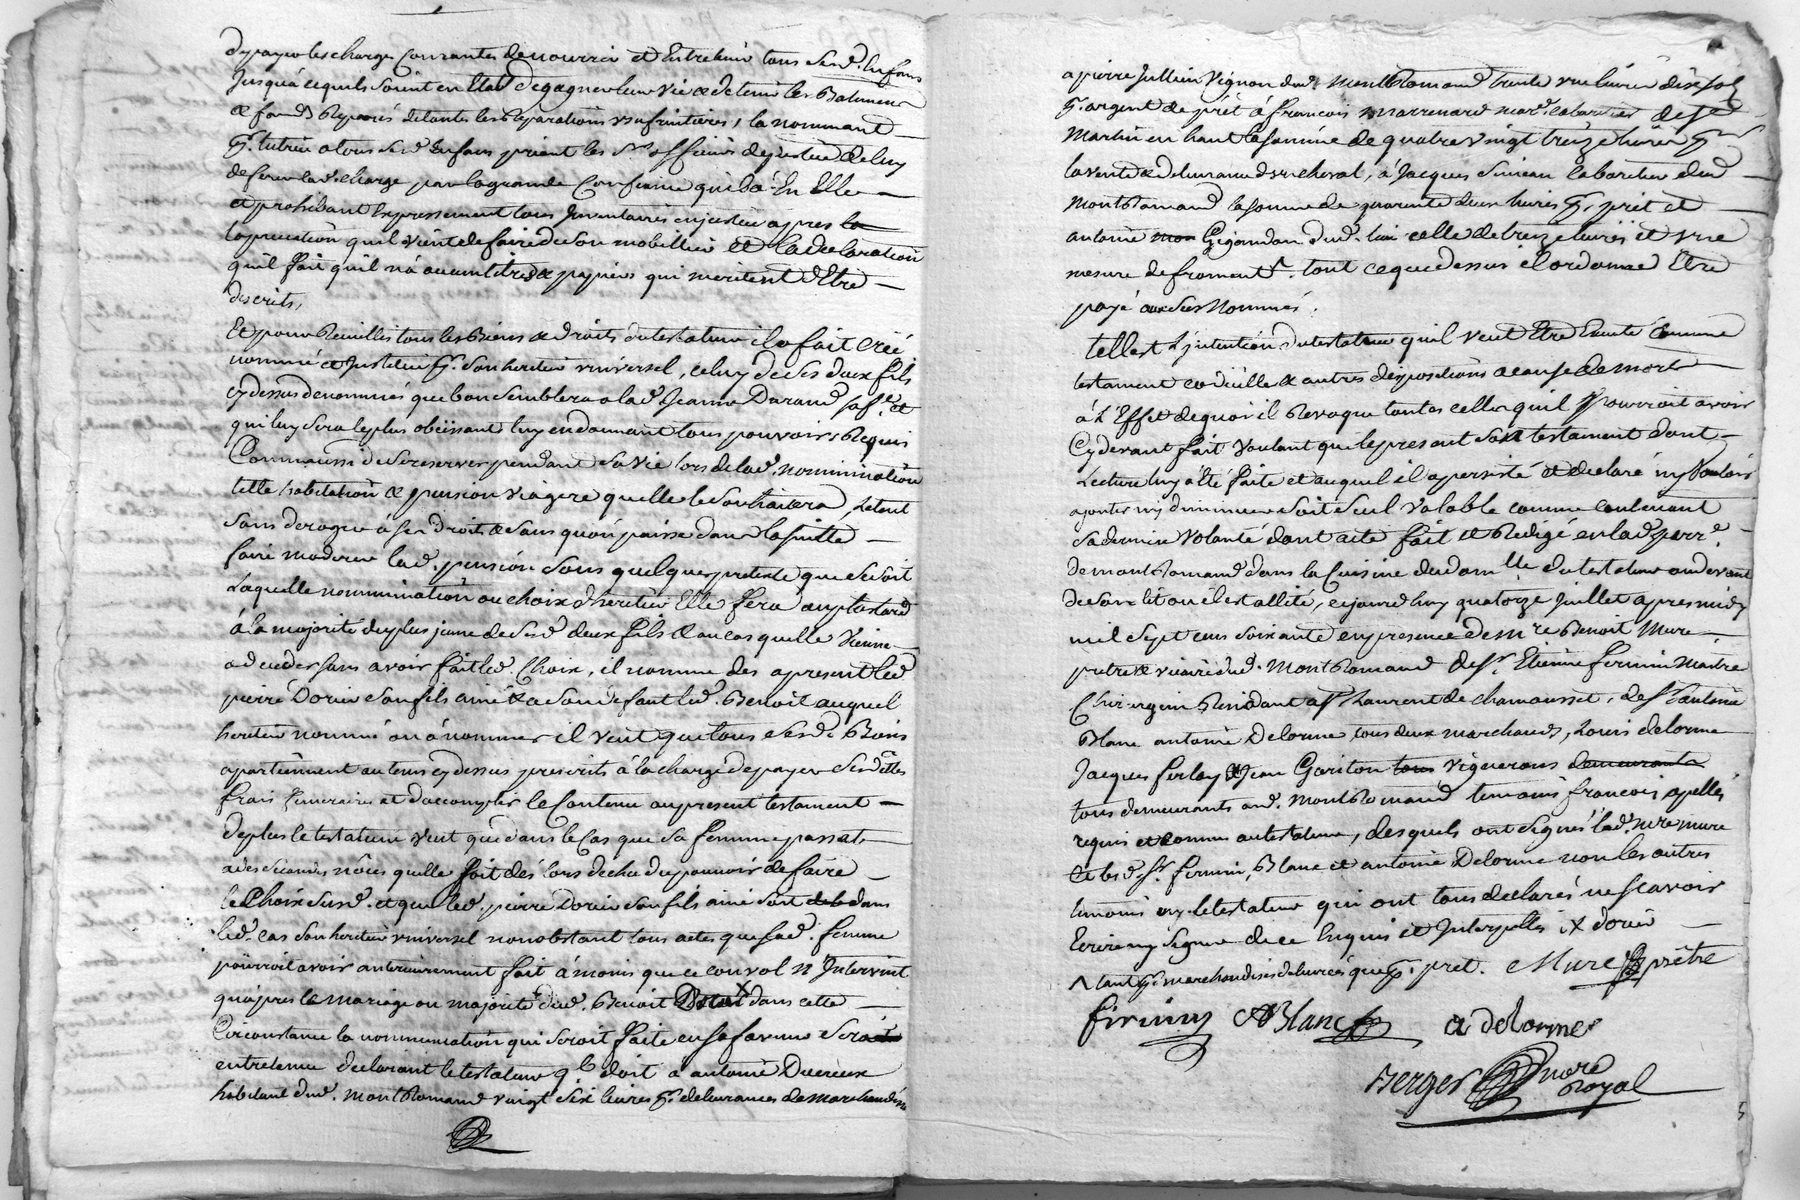 dy payer les charges Courantes de nourrir et Entretenir tous sesd. Enfans
Jusqu'a cequils soient en Etat de gagner leur vie & de tenir les Batimens
& fonds Reparés de toutes les Reparations usufruitieres, la nommant
tutrice a tous sesd Enfans priant les Srs officiers de justice de luy
deferer lad. charge par la grande Confiance quil a En Elle
et prohibant Expressement tous Inventaires en justice apres la
la precation quil vient de faire de son mobillier et La declaration
quil fait quil n'a aucun titres & papiers qui meritent d'Etre
descrits,
Et pour Recuillir tous les Biens & droits du testateur il a fait Créé
nommé et Institué pr. son heritier universel, celuy de ses deux fils
cy dessus denommés que bon semblera a lad Jeanne Durand sa fe. et
qui luy sera le plus obeissant luy en donnant tous pouvoirs Requis
Comm'aussi de se reserver pendant sa vie lors de lad. nommination
telle habitation & pension viagere quelle le souhaitera, Letout
sans deroger à ses droits & sans qu'on puisse dans la suitte
faire moderer lad. pension sous quelque pretexte que se soit
Laquelle nommination ou choix d'heritier Elle fera au plus tard
à la majorité du plus jeune de sesd deux fils & au cas quelle vienne
a deceder sans avoir fait led Choix, il nomme des apresent led
pierre Dorier son fils ainé & a son defaut led. Benoit auquel
heritier nommé ou à nommer il veut que tous sesd. Biens
apartiennent au tems cy dessus prescrits à la charge de payer sesd dettes
frais funeraires et d'accomplir le Contenu au present testament
de plus le testateur veut que dans le Cas que sa femme passat
a des secondes nôces quelle soit dés lors dechue du pouvoir de faire
le Choix susd. et que led. pierre Dorier son fils ainé soit deb dans
led. cas son heritier universel nonobstant tous actes que sad. femme
pourroit avoir anterieurement fait à moins que ce convol n'Intervint
qu'après le mariage ou majorité dud. Benoit X dans cette
Circonstance la nommination qui seroit faite en sa faveur sera
entretenue declarant le testateur ql. doit a antoine Ducreux
habitant dud. montRomand vingt six livres pr. delivrances de marchandises
a pierre Jullien Vignon dud. montRomand trente une livres dix sols
pr. argent de prêt à francois marrenard mard. laboureur de St
Martin en haut la somme de quatre vingt treize livres pr
la vente & delivrance d'un cheval, à Jacques Simean laboureur dud
montRomand la somme de quarante deux livres pr. prêt et
antoine mon Gigandon dud. lieu celle de treize livres et une
mesure de froment. tout ce que dessus il ordonne Etre
payé aux sus Nommés.
telle est L'intention du testateur quil veut Etre Executé Comme
testament codicille & autres dispositions a cause de mort
à L'Effet de quoi il Revoque toutes celles quil pourroit avoir
Cy devant fait voulant que le present soit testament dont
Lecture luy a été faite et auquel il a persisté et declaré ny vouloir
ajouter ny diminuer soit seul valable comme contenant
sa derniere volonté dont acte fait et Redigé en lad. parr.e
de montRomand dans la Cuisine du dom.lle du testateur au devant
de son lit ou il est allité, ce jourd'huy quatorze juillet apres midy
mil sept cens soixante en presence de mre Benoit Mure
pretre & vicaire dud. montRomand de Sr. Etienne fermin Maitre
Chirurgien Residant a St Laurent de chamousset, de Sr. antoine
Blanc antoine Delorme tous deux marchands, Louis delorme
Jacques ferlay & Jean Goriton tous vignerons demeurants
tous demeurants aud. montRomand temoins francois apellés
requis et connus au testateur, desquels ont signés lad. mre mure
et lesd. Sr. fermin, Blanc et antoine Delorme non les autres
temoins ny le testateur qui ont tous declarés ne scavoir
Ecrire ny signer de ce Enquis et Interpellés X dorier
^ tant pr. marchandises delivrées que pr. pret. Mure prêtre
firminy ABlanc a delorme
Berger nore
Royal